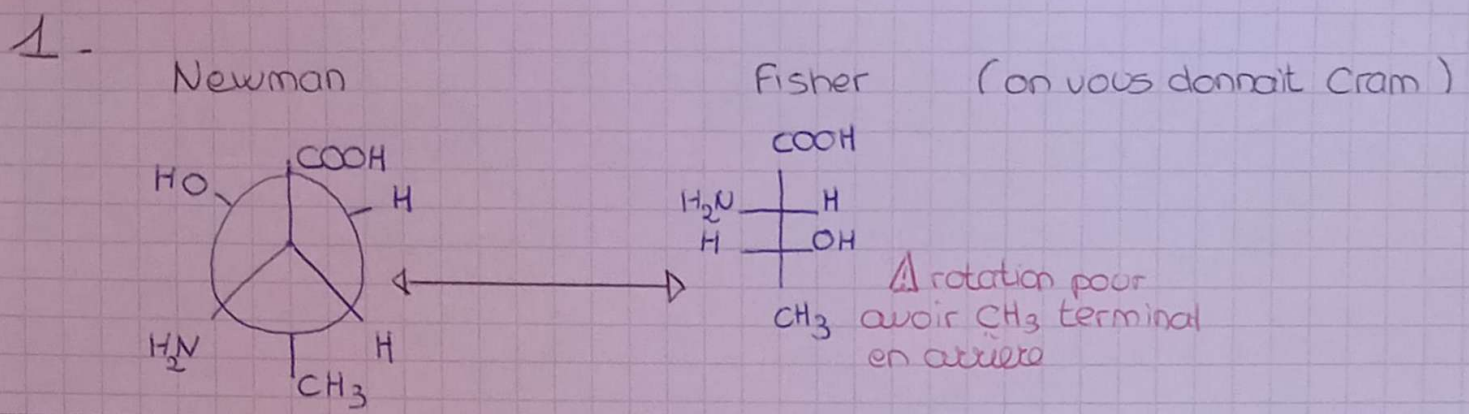 1-
Newman
Fisher (on vous donnait Cram)
COOH
HO
H
H₂N
H
CH₃
COOH
H₂N H
H OH
CH₃
⚠ rotation pour
avoir CH₃ terminal
en arrière